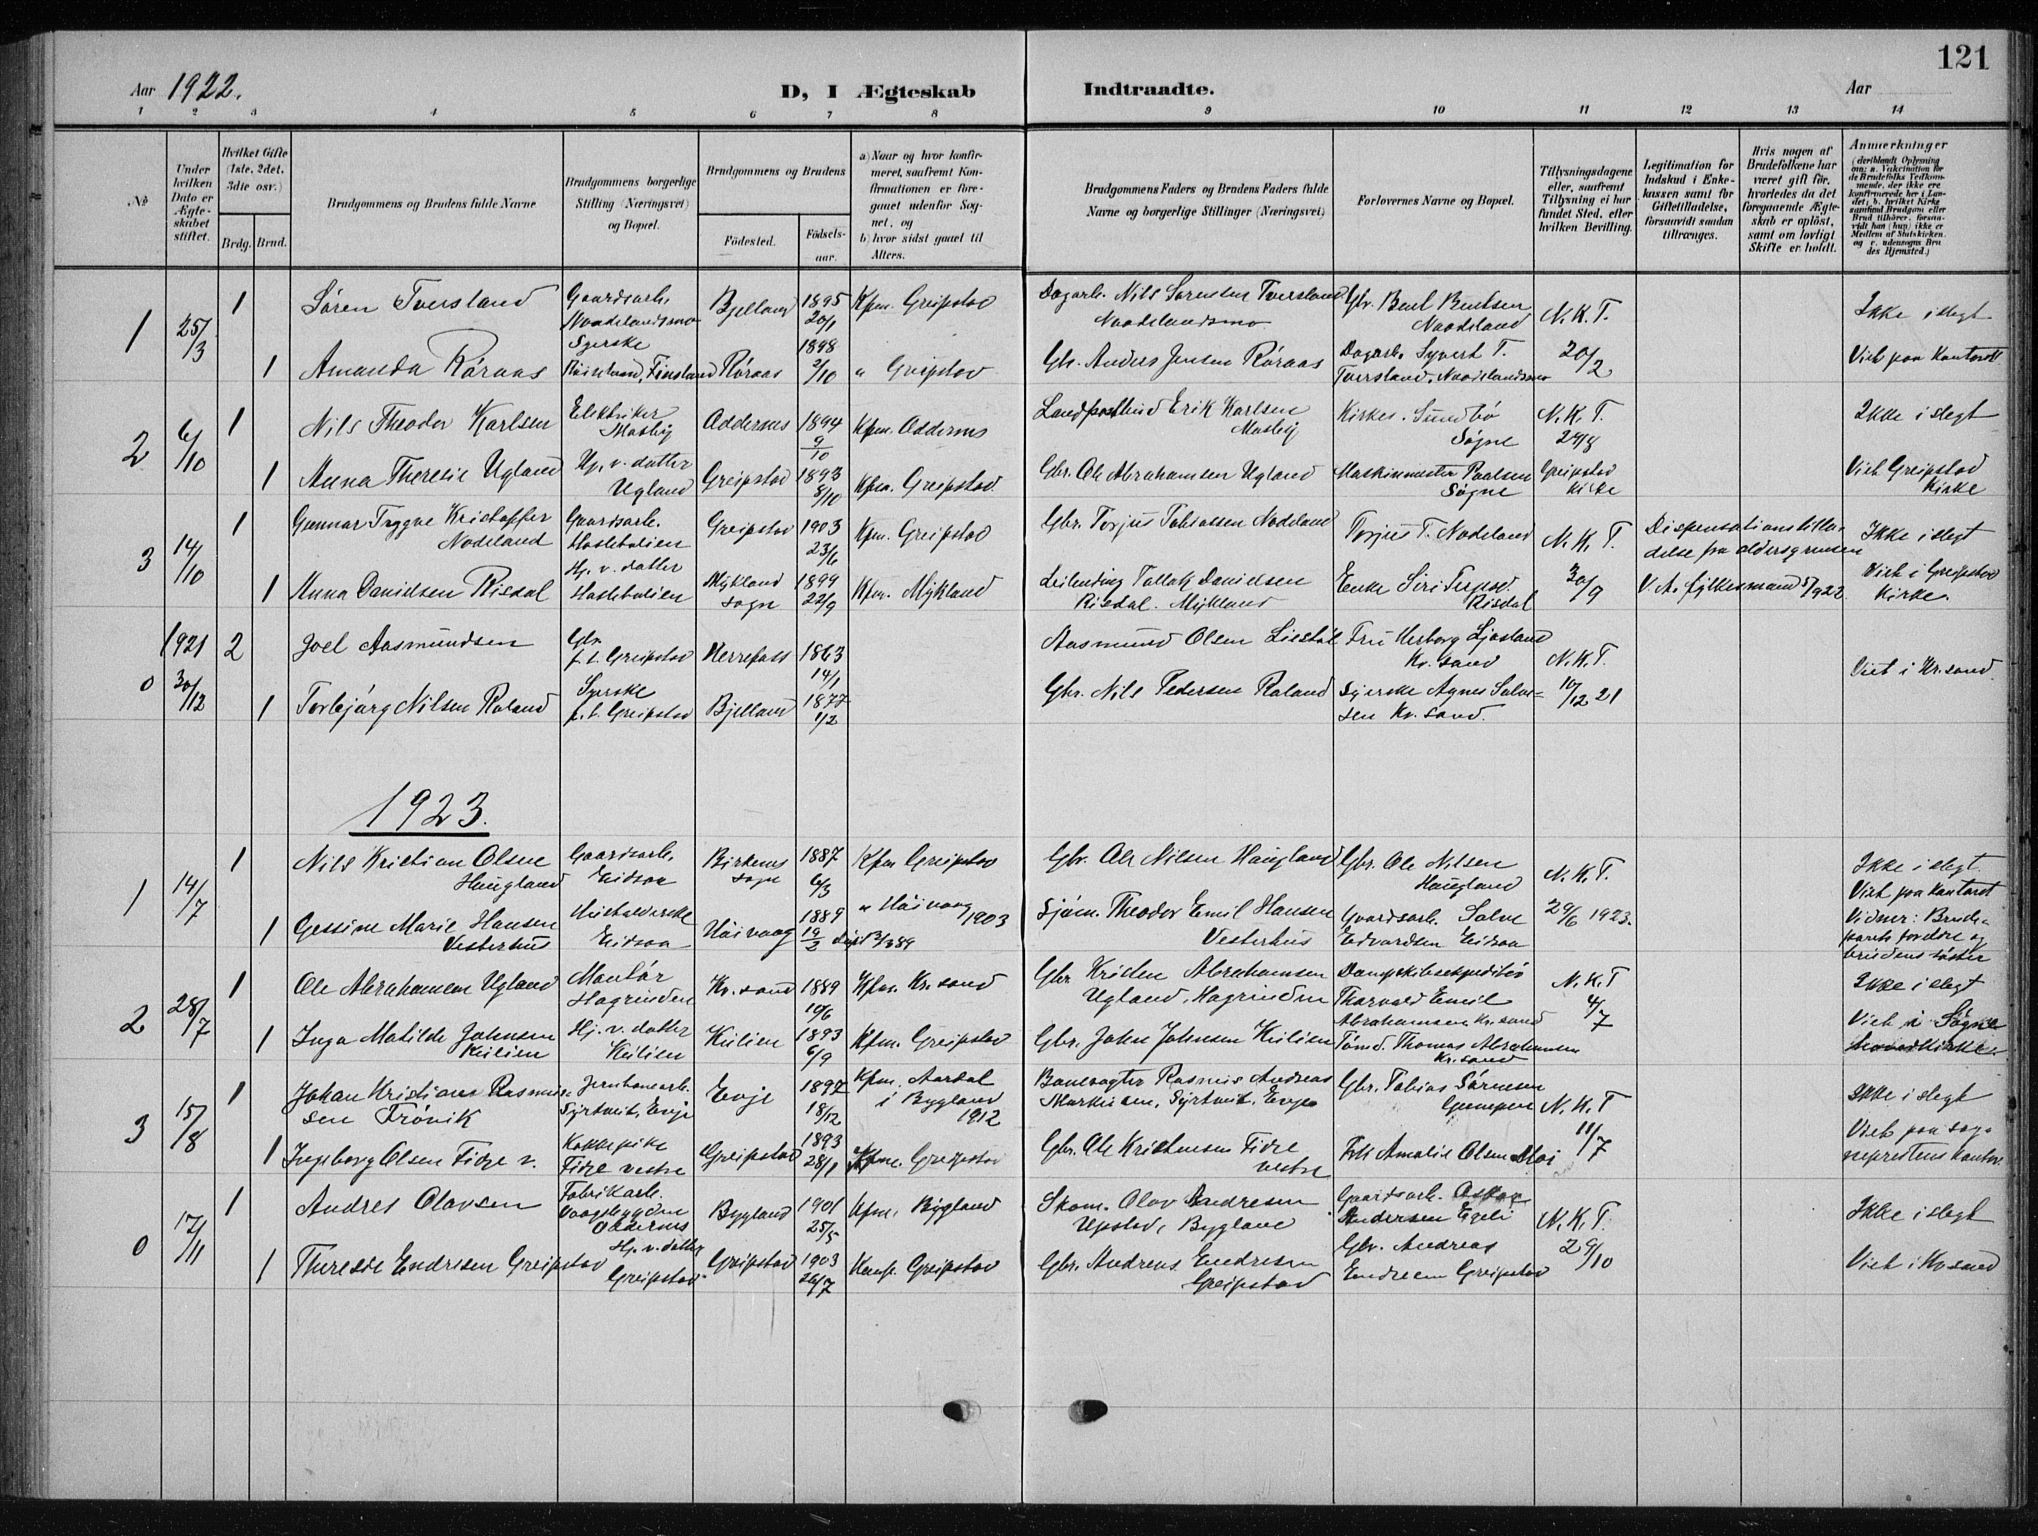 121
Aar 1922.
D, I Ægteskab Indtraadte.
Aar
1 2 3 4 5 6 7 8 9 10 11 12 13 14
No
Under hvilken Dato er Ægteskabet stiftet.
Hvilket Gifte (1ste, 2det, 3die osv.)
Brdg. Brud.
Brudgommens og Brudens fulde Navne
Brudgommens borgerlige Stilling (Næringsvei) og Bopæl.
Brudgommens og Brudens
Fødested.
Fødselsaar.
a) Naar og hvor konfirmeret, saafremt Konfirmationen er foregaaet udenfor Sognet, og
b) hvor sidst gaaet til Alters.
Brudgommens Faders og Brudens Faders fulde Navne og borgerlige Stillinger (Næringsvei)
Forlovernes Navne og Bopæl.
Tillysningsdagene eller, saafremt Tillysning ei har fundet Sted, efter hvilken Bevilling.
Legitimation for Indskud i Enkekassen samt for Giftetilladelse, forsaavidt saadan tiltrænges.
Hvis nogen af Brudefolkene har været gift før, hvorledes da det foregaaende Ægteskab er opløst, samt om lovligt Skifte er holdt.
Anmerkninger
(deriblandt Oplysning om: a. Vakcination for de Brudefolks Vedkommende, der ikke ere konfirmerede her i Landet; b. hvilket Kirkesamfund Brudgom eller Brud tilhører, forsaavidt han (hun) ikke er Medlem af Statskirken, og c. udensogns Brudes Hjemsted.)
1 25/3 1 Søren Tversland Gaardsarb. Naadelandsmo Bjelland 1895 20/1 Kfm. Greipstad Dagarb. Nils Sørensen Tversland Naadelandsmo Gbr. Bent Bentsen Naadeland N.K.T. Ikke i slegt
1 Amanda Røraas Syerske Røiseland, Finsland Røraas 1898 2/10 " Greipstad Gbr. Anders Jensen Røraas Dagarb. Syvert T. Tversland, Naadelandsmo 20/2 Viet paa kontoret
2 6/10 1 Nils Theodor Karlsen Elektriker Mosby Oddernes 1894 9/10 Kfm. Oddernes Landpostbud Erik Karlsen Mosby Kirkes. Sundbø Søgne N.K.T. 24/8 Ikke i slegt
1 Anna Theresie Ugland Hj. v. datter Ugland Greipstad 1893 8/10 Kfm. Greipstad. Gbr. Ole Abrahamsen Ugland Maskinmester Paulsen Søgne Greipstad Kirke Viet Greipstad Kirke
3 14/10 1 Gunnar Tryggve Kristoffer Nodeland Gaardsarb. Haslebalien Greipstad 1903 23/6 Kfm. Greipstad Gbr. Torjus Tobiassen Nodeland Torjus T. Nodeland N.K.T. Dispensationstilladelse fra aldersgrænsen Ikke i slegt
1 Anna Danidsen Risdal Hj. v. datter Haslebalien Mykland sogn 1899 22/9 Kfm. Mykland Leilending Tallak Danidsen Risdal. Mykland Enke Siri Terjesd. Risdal 30/9 V.A. fylkesmand 5/922 Viet i Greipstad Kirke.
0 1921 30/12 2 Joel Aasmundsen Gbr. f.t. Greipstad Herrefoss 1863 14/1 Aasmund Olsen Liestøl Fru Herborg Ljosland Kr. sand N.K.T. Viet i Kr.sand.
1 Torbjørg Nilsen Roland Syerske f.t. Greipstad Bjelland 1877 1/2 Gbr. Nils Pedersen Roland Syerske Agnes Salvesen Kr. sand. 10/12 21
1923.
1 14/7 1 Nils Kristian Olsen Haugland Gaardsarb. Eidsaa Birkenes sogn 1887 6/3 Kfm Greipstad Gbr. Ole Nilsen Haugland Gbr. Ole Nilsen Haugland N.K.T. Ikke i slegt. Viet paa kontoret
1 Gessine Marie Hansen Vesterhus Husholderske Eidsaa Høivaag 1889 19/2 " Høivaag 1903 Sjøm. Theodor Emil Hansen Vesterhus Gaardsarb. Salve Edvardsen Eidsaa 29/6 1923. Vidner: Brudeparets fordre og brudens søster
2 28/7 1 Ole Abrahamsen Ugland Montør Hagrinden Kr. sand 1889 10/6 Kfm. Kr. sand Gbr. Kristen Abrahamsen Ugland, Hagrinden Dampskibsekspeditør Thorvald Emil Abrahamsen Kr. sand N.K.T 4/7 Ikke i slegt
1 Inga Matilde Johnsen Kulien Hj. v. datter Kulien Kulien 1893 6/9 Kfm. Greipstad Gbr. John Johnsen Kulien Tømd. Thomas Abrahamsen Kr. sand Viet i Søgne hovedkirke.
3 15/8 1 Johan Kristian Rasmussen Trønik Jernbanearb. Syrtveit, Evje Evje 1897 18/12 Kfm. Aardal i Bygland 1912 Banevogter Rasmus Andreas Markusen, Syrtveit, Evje Gbr. Tobias Sørensen Gumpen N.K.T Ikke i slegt
1 Ingeborg Olsen Fidje v. Kokkepike Fidje vestre Greipstad 1893 28/1 Kfm. Greipstad Gbr. Ole Kristensen Fidje vestre Frk Amalie Olsen Moi 11/7 Viet paa sogneprestens kontor
0 17/11 1 Andres Olavsen Fabrikarb. Vaagsbygden Oddernes Bygland 1901 25/5 Kfm. Bygland Skom. Olav Andresen Upstad, Bygland Gaardsarb. Oskar Andersen Egeli N.K.T. Ikke i slegt
1 Therese Endresen Greipstad Hj. v. datter Greipstad. Greipstad 1903 26/7 Konf. Greipstad Gbr. Andreas Endresen Greipstad Gbr. Andreas Endresen Greipstad 29/10 Viet i Kr.sand